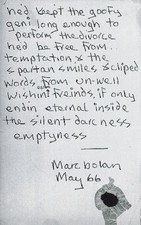 hed kept the goofy
geni long enough to
perform the divorce
hed be free from..
temptation & the
spartan smiles & cliped
words from un-well
wishing freinds, if only
endin eternal inside
the silent darcness
emptyness
Marc bolan
May 66